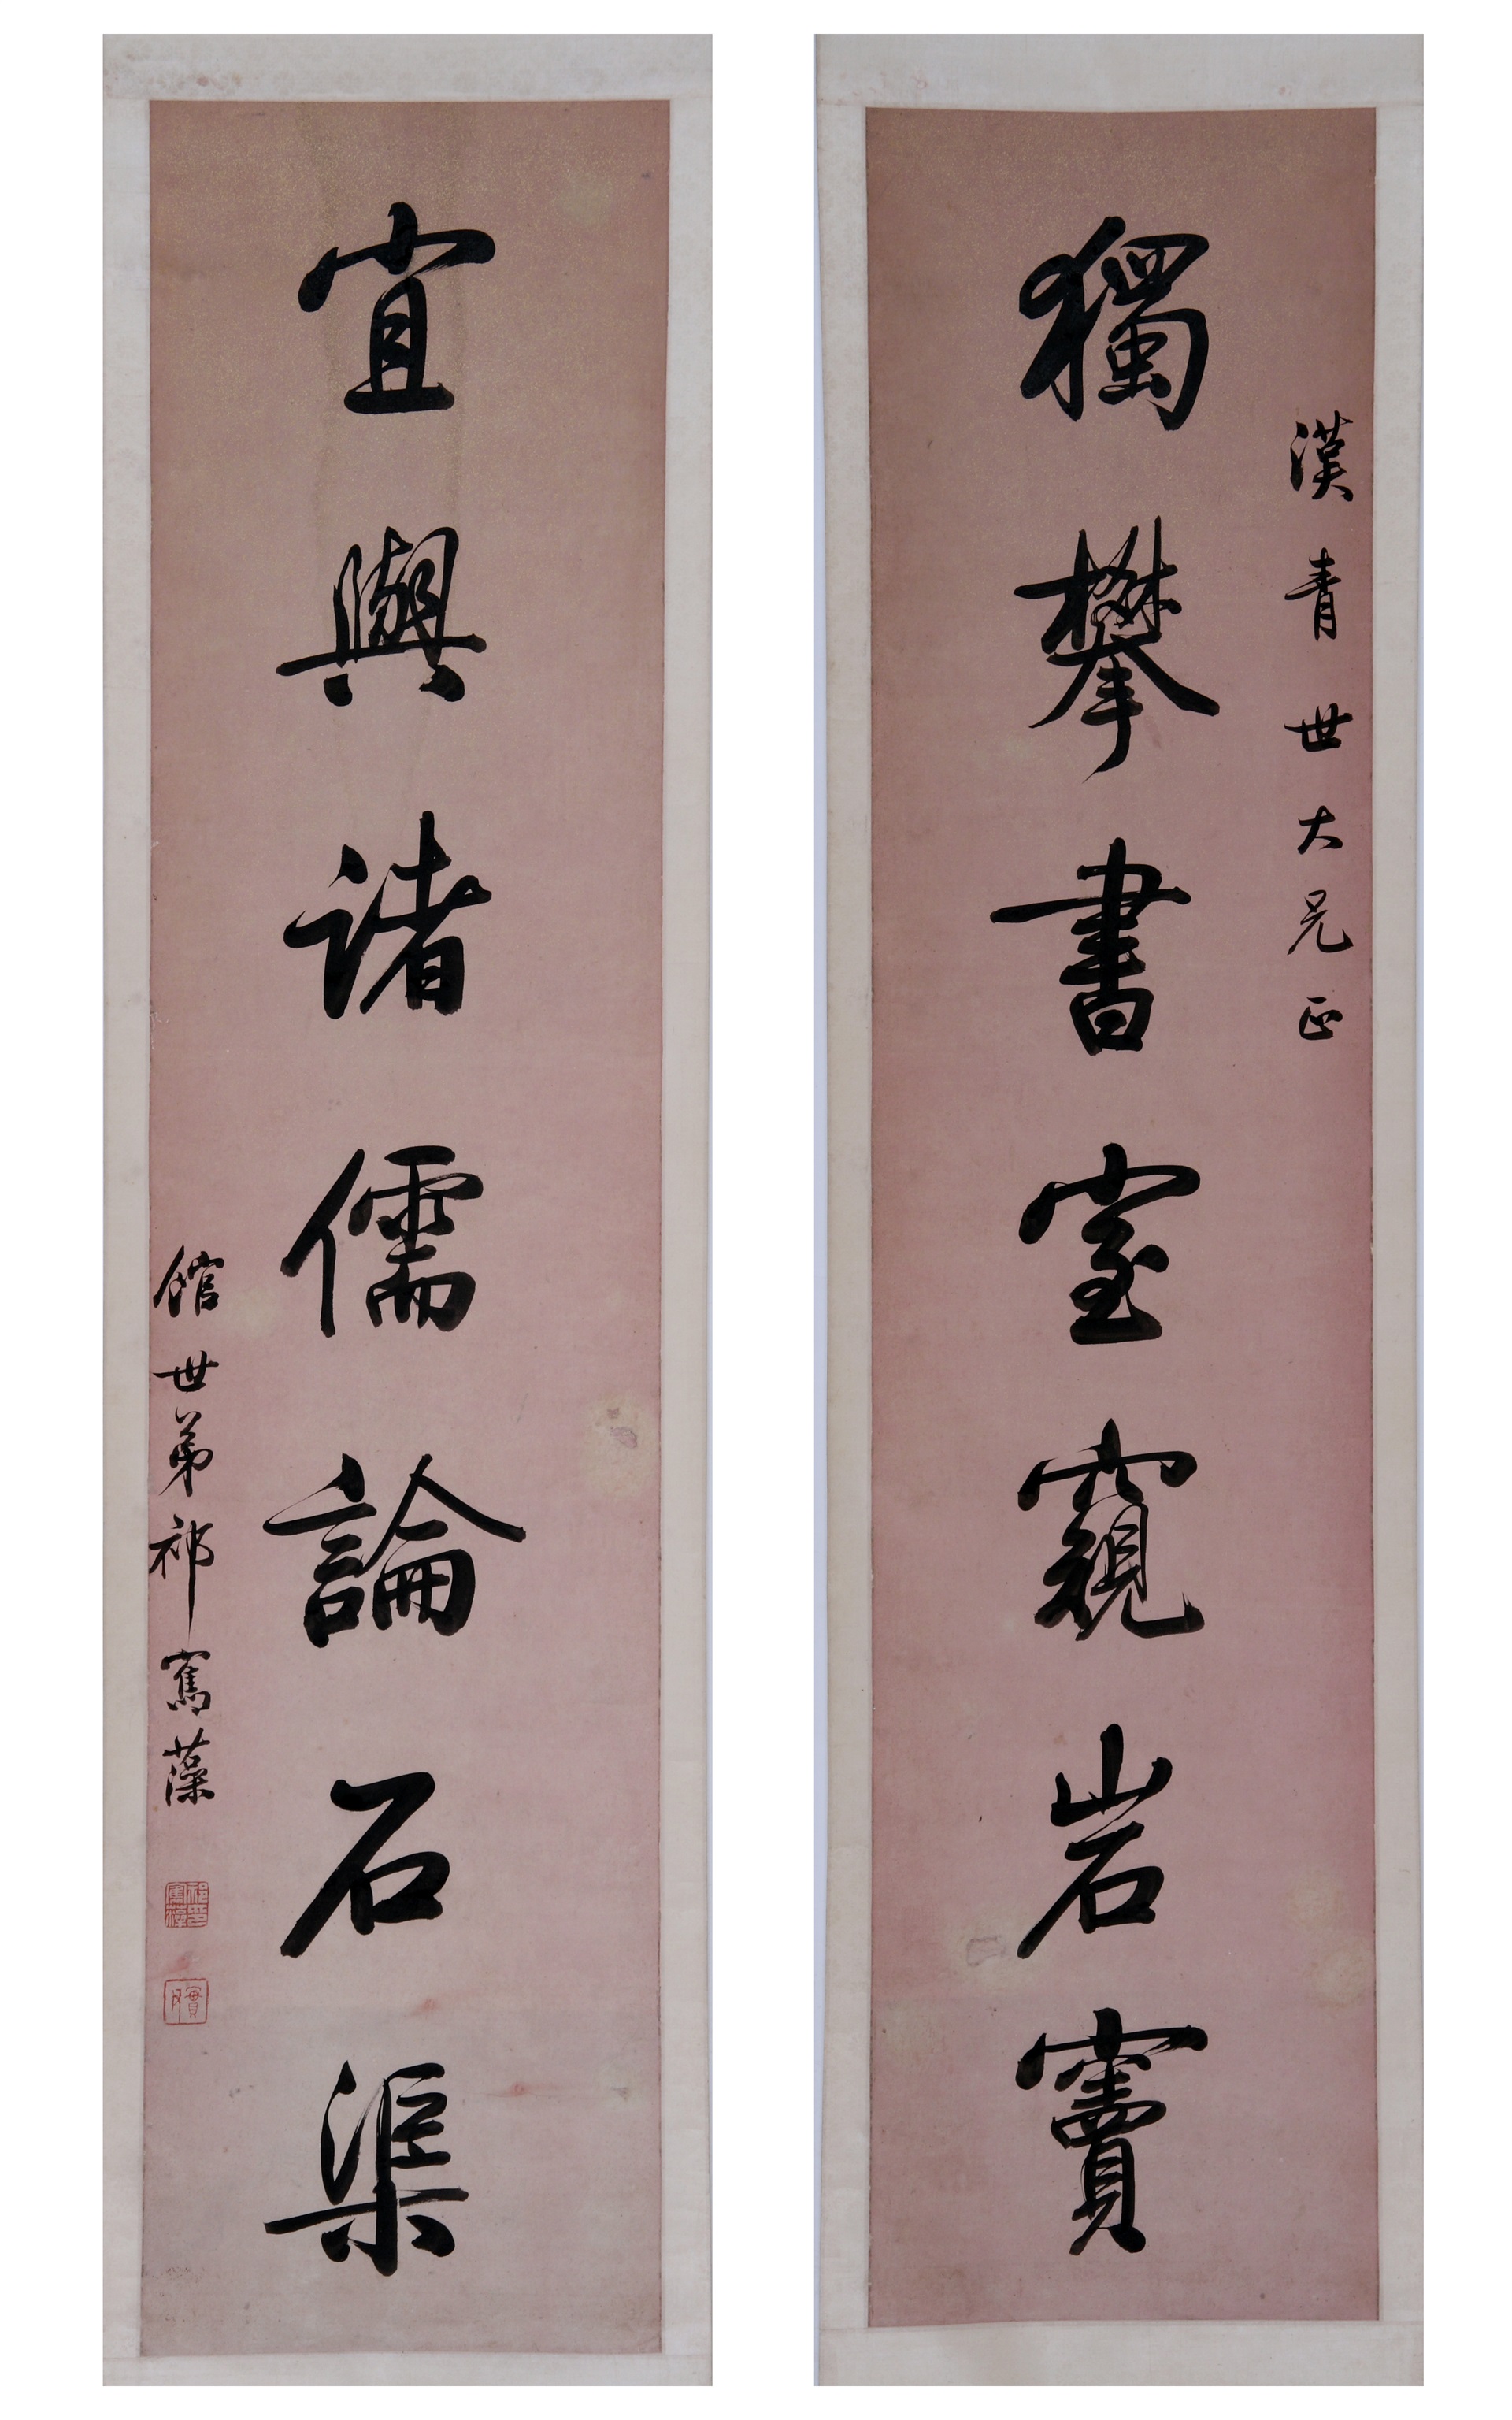 漢青世大兄正
獨攀書室窺岩竇
宜與諸儒論石渠
館世弟祁寯藻